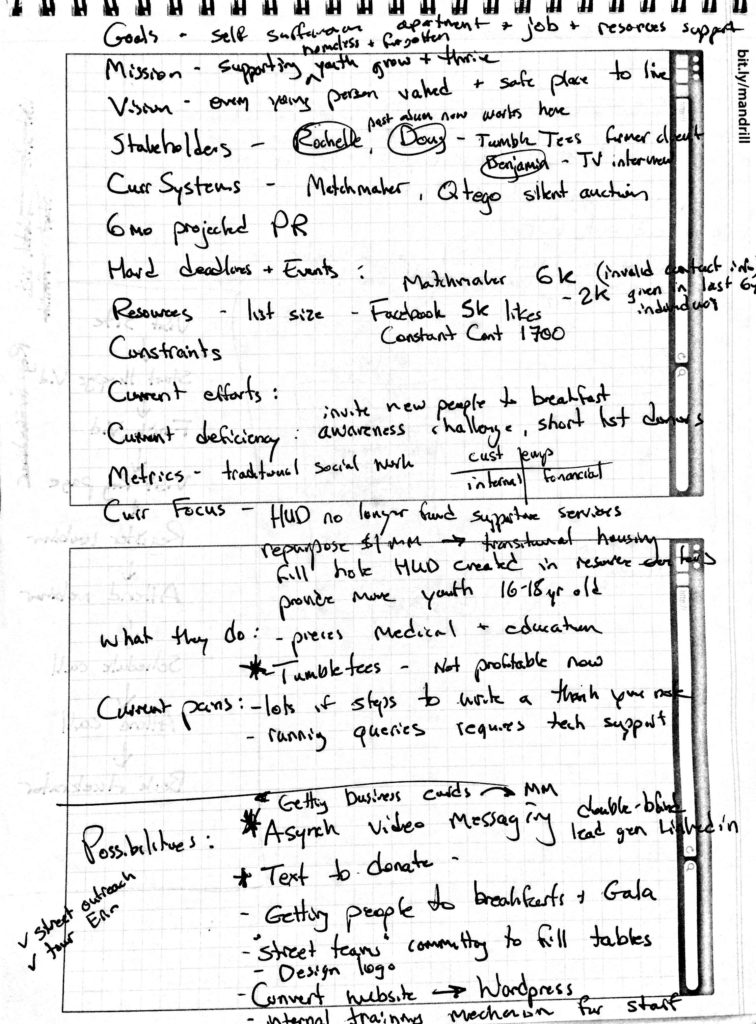 Goals - self apartment + job + resources support
homeless + forgotten
Mission - supporting youth grow + thrive
Vision - every young person valued + safe place to live
past alum now works here
Stakeholders - Rochelle, Doug - Tumble Tees former client
Benjamin - TV interview
Curr Systems - Matchmaker, Qtego silent auction
6 mo projected PR
Hard deadlines + Events :
Matchmaker 6k (invalid contact info
- 2k given in last 6y
individual
Resources - list size - Facebook 5k likes
Constant Cont 1700
Constraints
Current efforts :
invite new people to breakfast
Current deficiency : awareness challenge, short list donors
Metrics - traditional social work
cust emp
internal financial
Curr Focus - HUD no longer fund supportive services
repurpose $1MM → transitional housing
fill hole HUD created in resource
provide more youth 16-18 yr old
What they do : - pieces medical + education
* - Tumbletees - Not profitable now
Current pains : - lots of steps to write a thank you note
- running queries requires tech support
Getting business cards → MM
Possibilities :
* Asynch video messaging double-blind
lead gen LinkedIn
* Text to donate -
- Getting people to breakfasts + Gala
- "street teams" committing to fill tables
- Design logo
- Convert website → Wordpress
- internal training mechanism for staff
✓ street outreach
✓ tour
bit.ly/mandrill